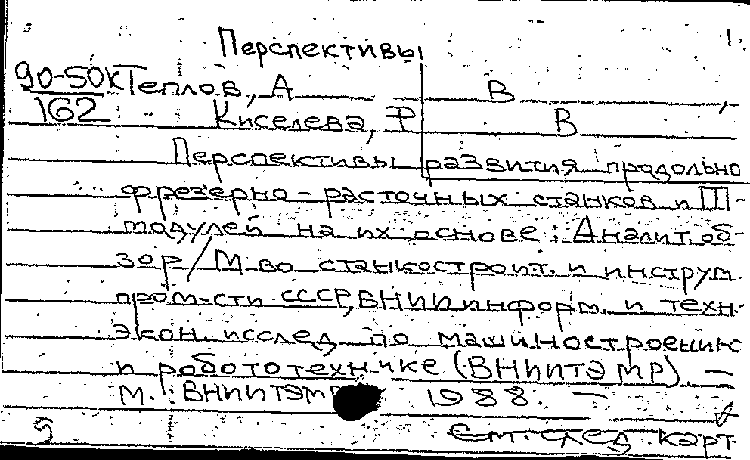 1.
Перспективы
90-50к Теплов, А В ,
162 Киселева, Р В
Перспективы развития продольно
фрезерно-расточных станков и ГП-
модулей на их основе: Аналит. об-
зор / М-во станкостроит. и инструм.
пром-сти СССР, ВНИИ информ. и техн.-
экон. исслед. по машиностроению
и робототехнике (ВНИИТЭМР). —
М.: ВНИИТЭМР 1988. —
См. след. карт.